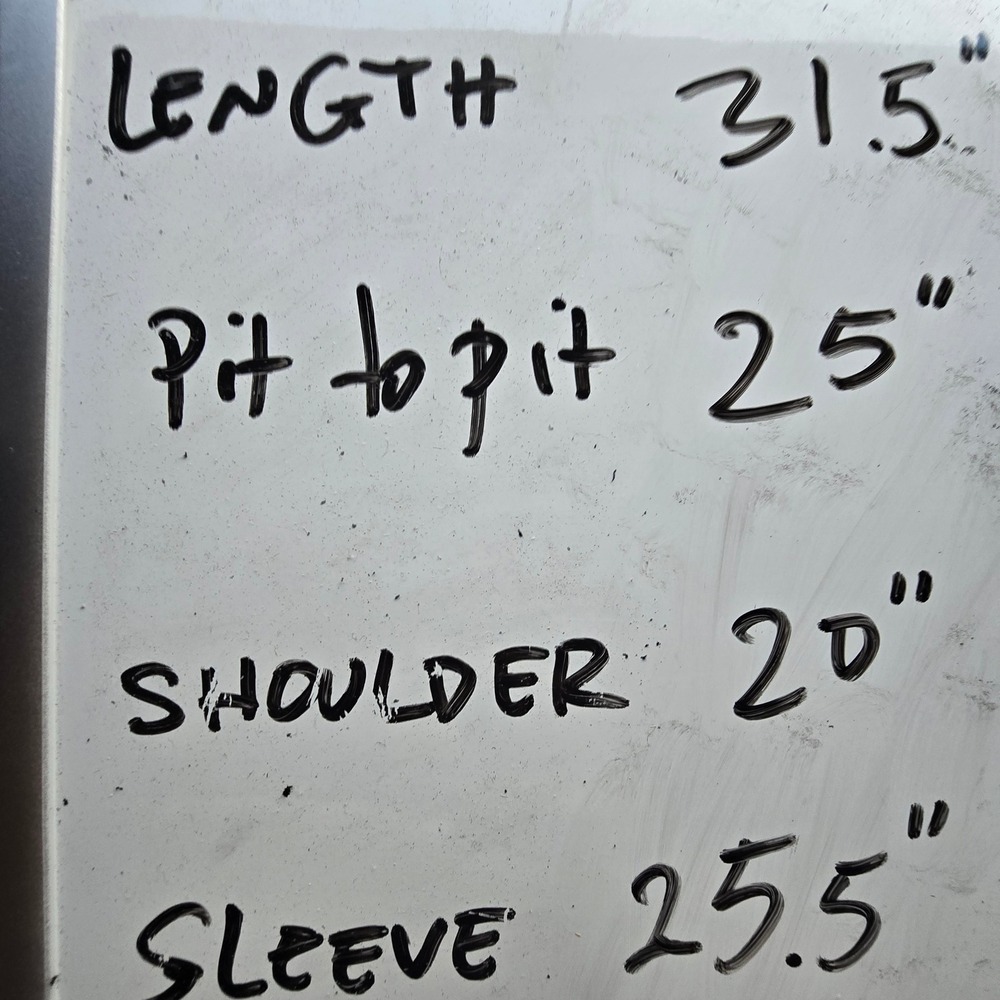 LENGTH 31.5"
Pit to pit 25"
SHOULDER 20"
SLEEVE 25.5"